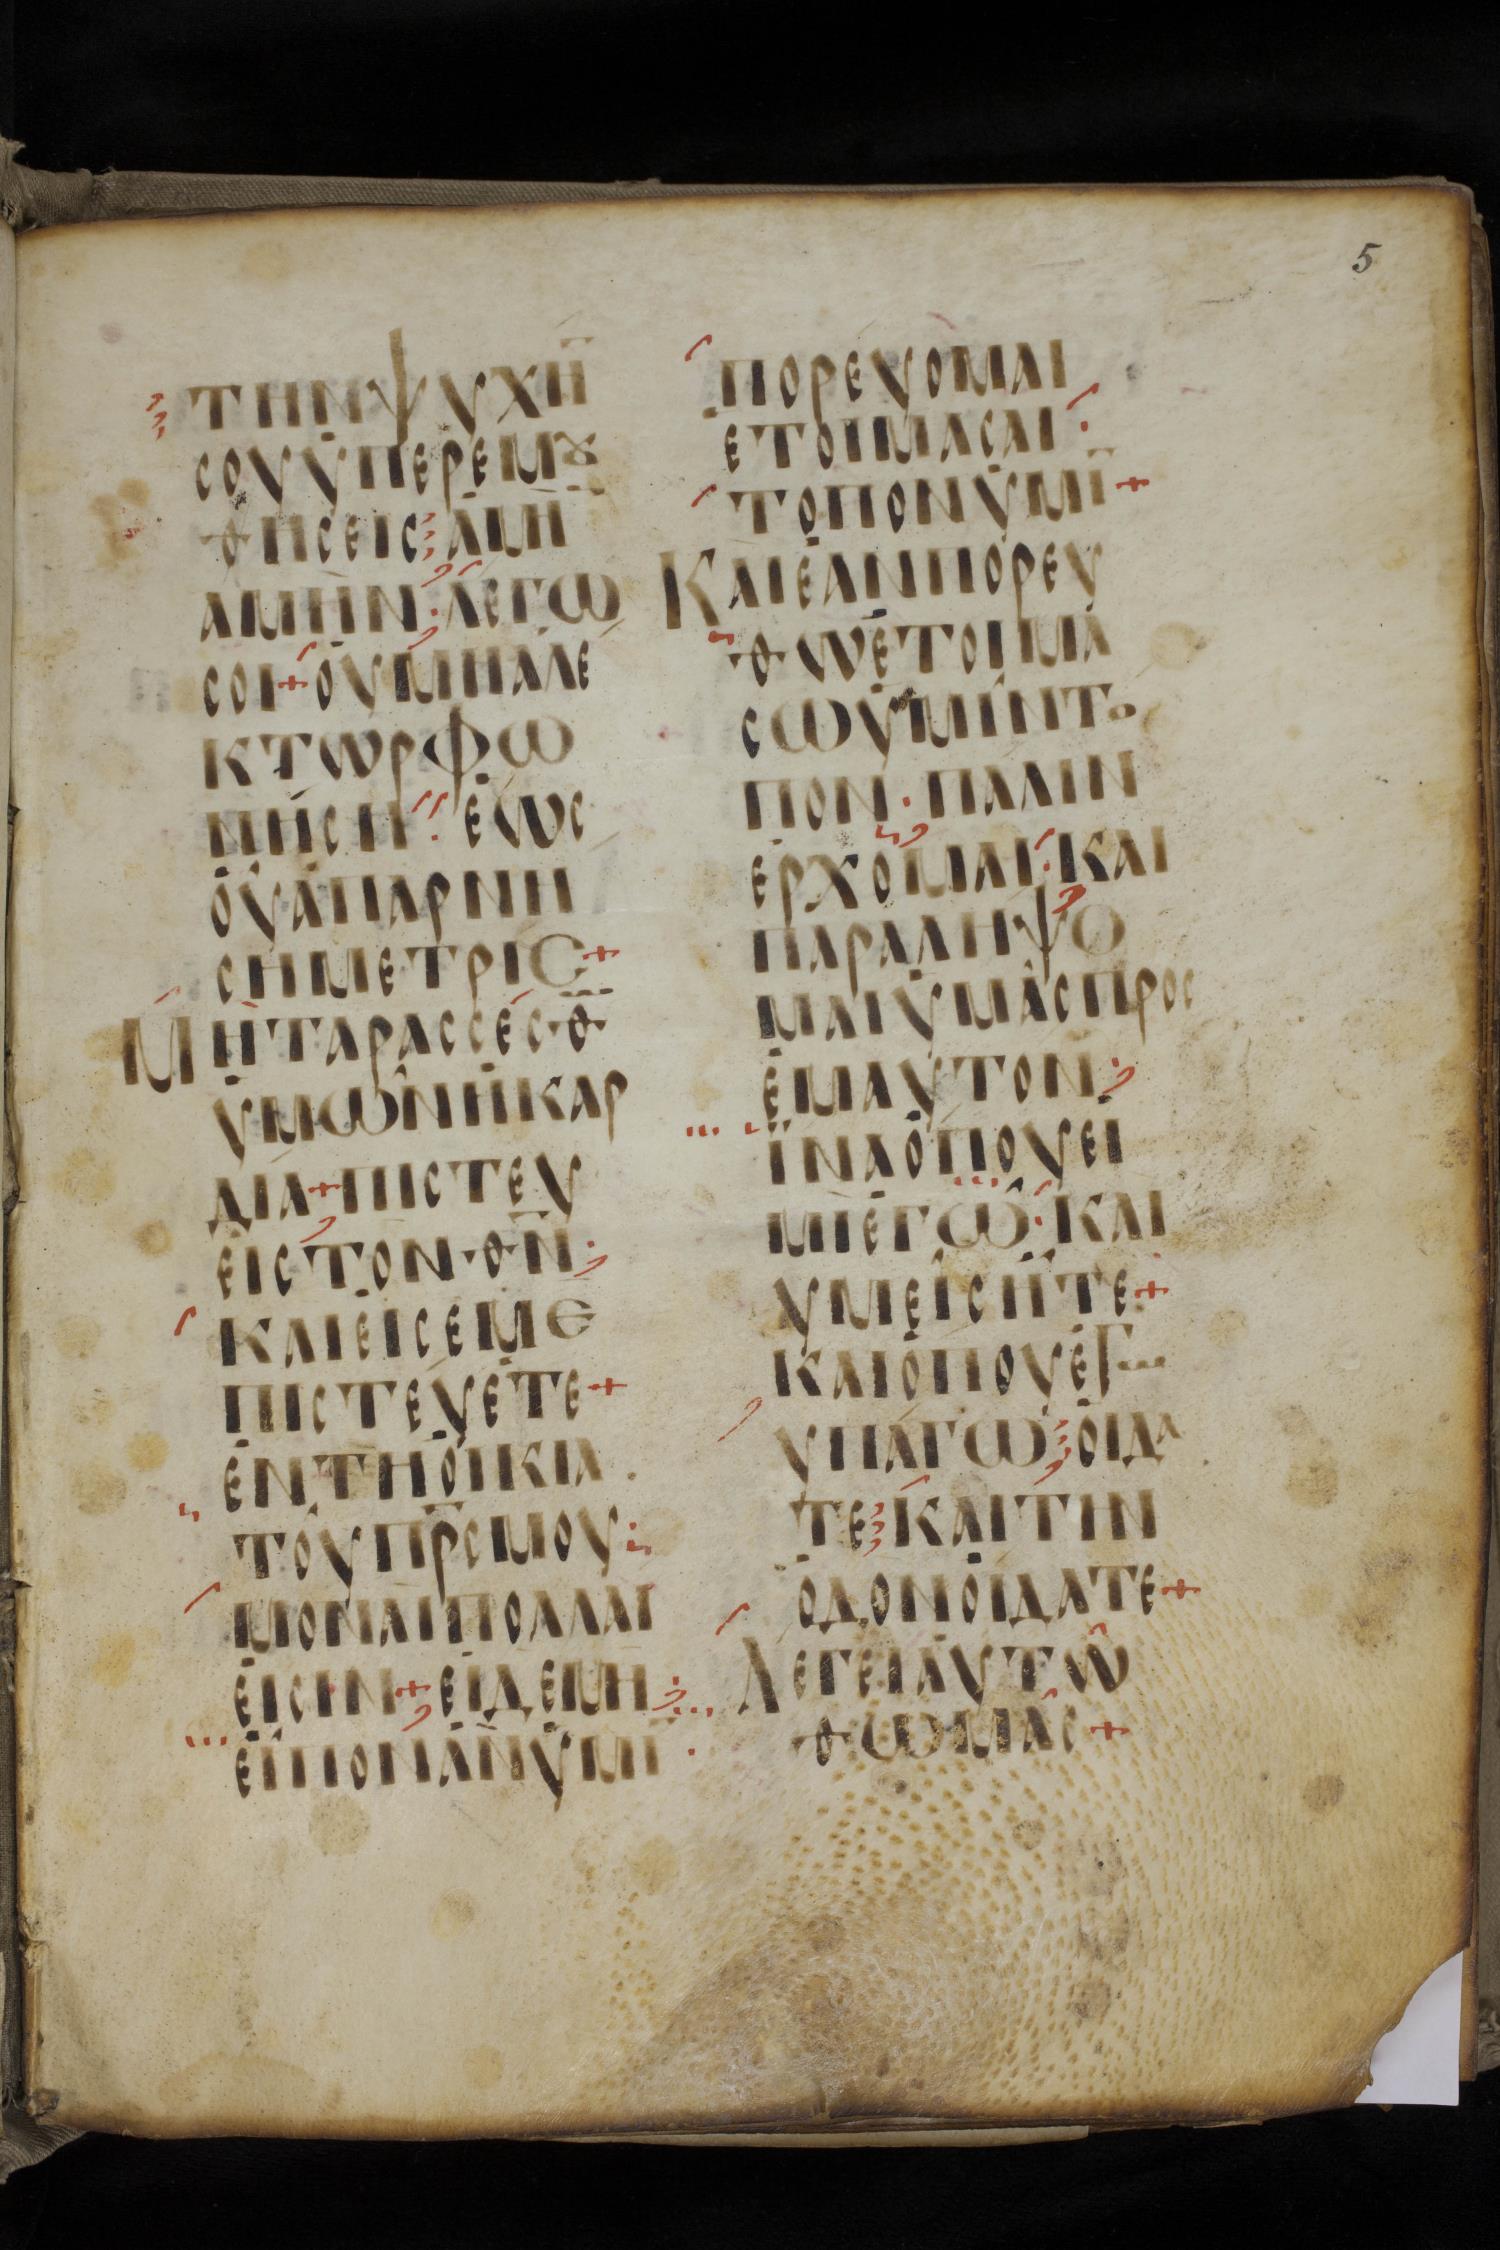 5
ΤΗΝΨΥΧΗ̅
ΣΟΥΥΠΕΡΕΜȢ
ΘΗΣΕΙΣ ΑΜΗ̅
ΑΜΗΝ· ΛΕΓΩ
ΣΟΙ+ΟΥΜΗΑΛΕ
ΚΤΩΡΦΩ
ΝΗΣΗ· ΕΩΣ
ΟΥΑΠΑΡΝΗ
ΣΗΜΕΤΡΙΣ+
ΜΗΤΑΡΑΣΣΕΣΘ̅
ΥΜΩΝΗΚΑΡ
ΔΙΑ+ΠΙΣΤΕΥ
ΕΙΣΤΟΝΘ̅Ν̅·
ΚΑΙΕΙΣΕΜΕ
ΠΙΣΤΕΥΕΤΕ+
ΕΝΤΗΟΙΚΙΑ
ΤΟΥΠ̅Ρ̅Σ̅ΜΟΥ
ΜΟΝΑΙΠΟΛΛΑΙ
ΕΙΣΙΝ+ΕΙΔΕΜΗ
ΕΙΠΟΝΑΝΥΜΙ̅
ΠΟΡΕΥΟΜΑΙ
ΕΤΟΙΜΑΣΑΙ·
ΤΟΠΟΝΥΜΙ̅+
ΚΑΙΕΑΝΠΟΡΕΥ
ΘΩΕΤΟΙΜΑ
ΣΩΥΜΙΝΤΟ
ΠΟΝ·ΠΑΛΙΝ
ΕΡΧΟΜΑΙ·ΚΑΙ
ΠΑΡΑΛΗΨΟ
ΜΑΙΥΜΑΣΠΡΟΣ
ΕΜΑΥΤΟΝ·
ΙΝΑΟΠΟΥΕΙ
ΜΙΕΓΩ·ΚΑΙ
ΥΜΕΙΣΗΤΕ+
ΚΑΙΟΠΟΥΕΓΩ
ΥΠΑΓΩ ΟΙΔΑ
ΤΕ ΚΑΙΤΗΝ
ΟΔΟΝΟΙΔΑΤΕ+
ΛΕΓΕΙΑΥΤΩ
ΘΩΜΑΣ+